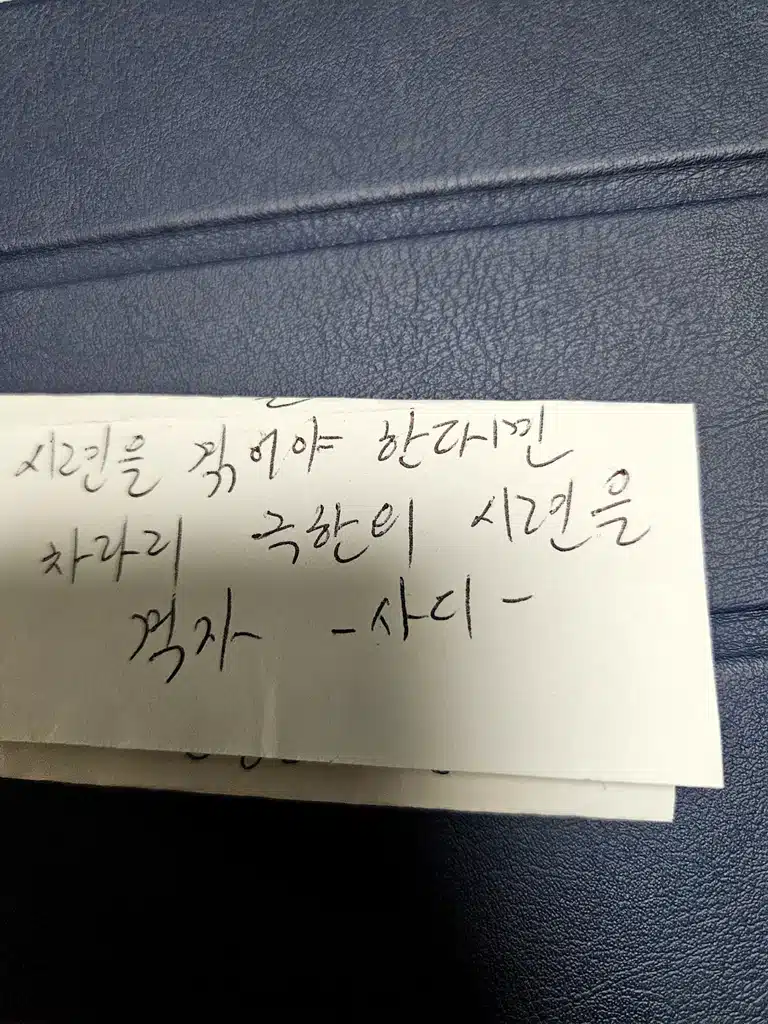 시련을 겪어야 한다면
차라리 극한의 시련을
겪자 -사디-